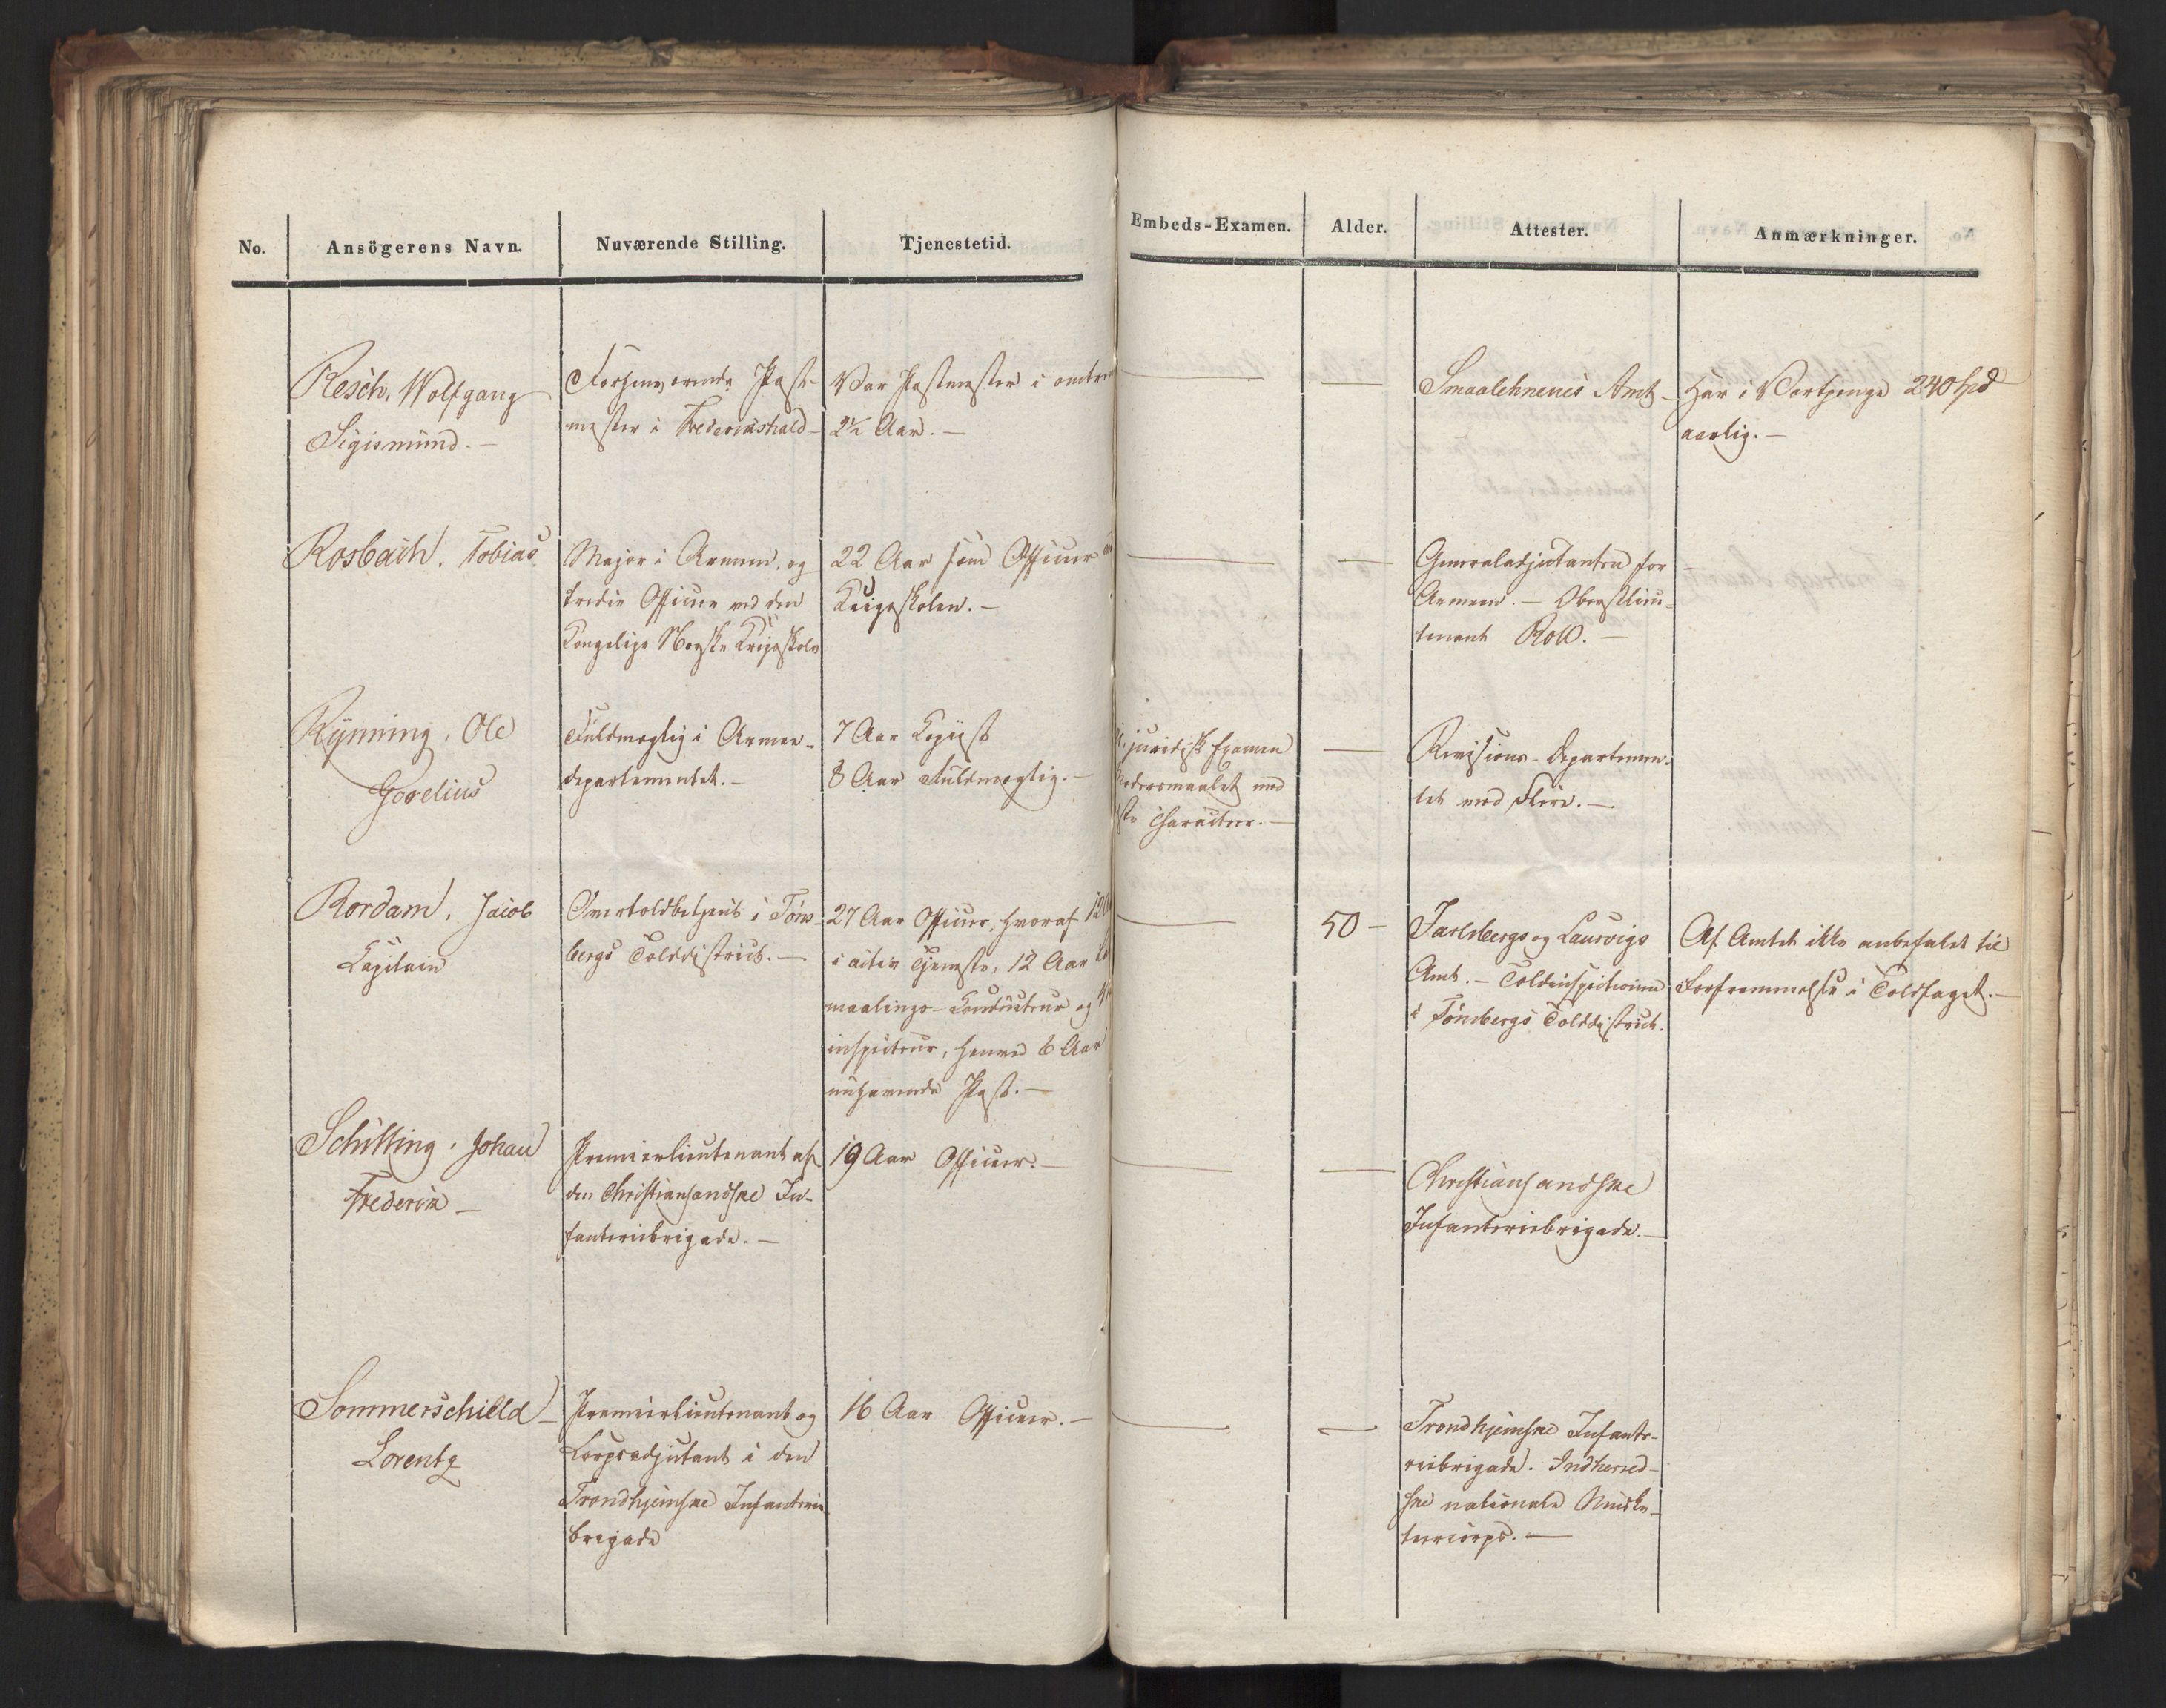 No.
Ansögerens Navn.
Nuværende Stilling.
Tjenestetid.
Embeds-Examen.
Alder.
Attester.
Anmærkninger.
Resch, Wolfgang
Sigismund. —
Forhenværende Post-
mester i Frederikshald —
Var Postmester i omtr
2½ Aar. —
—
—
Smaalehnenes Amt —
Har i Vartpenge 240 Spd
aarlig. —
Rosbach, Tobias
Major i Armeen, og
tredie Officeer ved den
Kongelige Norske Krigsskole
22 Aar som Officeer
Krigsskolen. —
—
—
Generaladjutanten for
Armeen. — Oberstlieu-
tenant Roll. —
Rynning, Ole
Gorelius
Fuldmægtig i Armee-
departementet. —
7 Aar Copiist
8 Aar Fuldmægtig. —
juridisk Examen
modersmaalet med
ste Characteer. —
—
Revisions-Departemen-
tet med Flere. —
Rordam, Jacob
Capitain
Overtoldbetjent i Töns-
bergs Tolddistrict. —
27 Aar Officeer, hvoraf 12
i activ Tjeneste, 12 Aar
maalings-Conducteur og
inspecteur, henved 6 Aar
nuhavende Post. —
—
50 —
Jarlsbergs og Laurvigs
Amt. — Toldinspecteuren
i Tönsbergs Tolddistrict.
Af Amtet ikke anbefalet til
Forfremmelse i Toldfaget. —
Schilling, Johan
Frederik —
Premierlieutenant af
den Christiansandske In-
fanteriebrigade. —
19 Aar Officeer. —
—
—
Christiansandske
Infanteriebrigade. —
Sommerschield —
Lorentz
Premierlieutenant og
Corpsadjutant i den
Trondhjemske Infanterie
brigade
16 Aar Officeer. —
—
—
Trondhjemske Infante-
riebrigade. Indherred-
ske nationale Muske-
teercorps. —